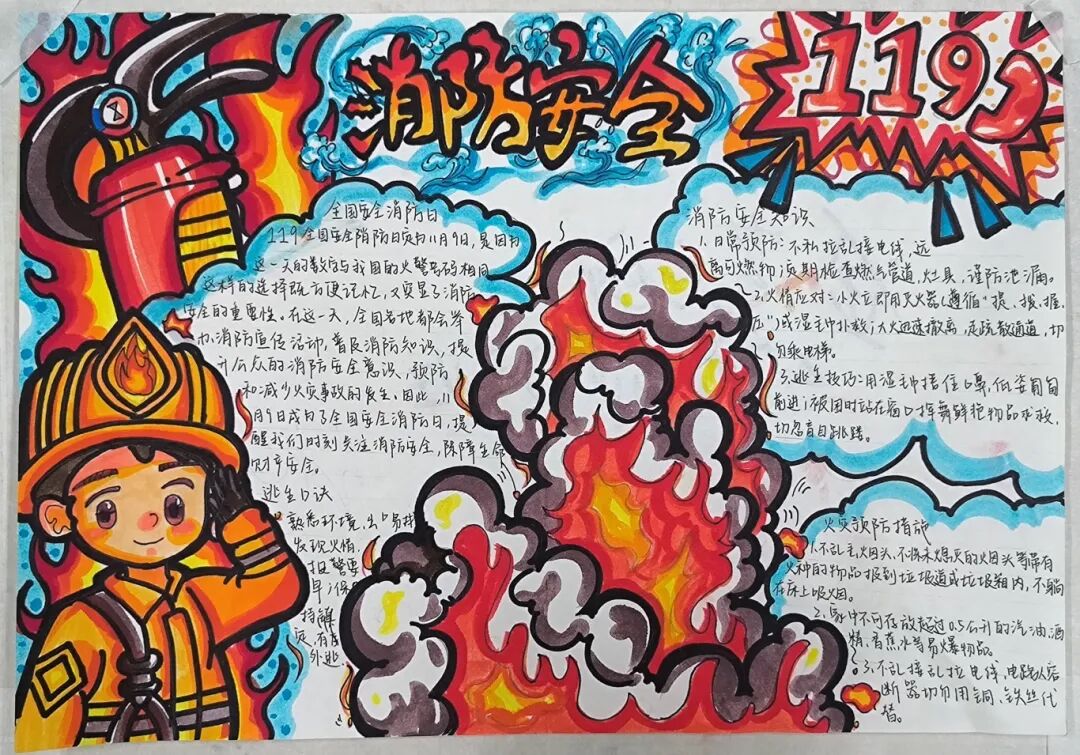 消防安全
119
全国安全消防日
119全国安全消防日定为11月9日,是因为
这一天的数字与我国的火警号码相同
这样的选择既方便记忆,又突显了消防
安全的重要性。在这一天,全国各地都会举
办消防宣传活动,普及消防知识,提
升公众的消防安全意识,预防
和减少火灾事故的发生。因此,11
月9日成为了全国安全消防日,提
醒我们时刻关注消防安全,保障生命
财产安全。
逃生口诀
熟悉环境,出口易找
发现火情,
报警要
早;保
持镇
定,有序
外逃
消防安全知识
1.日常预防:不私拉乱接电线,远
离可燃物;定期检查燃气管道,灶具,谨防泄漏。
2.火情应对:小火立即用灭火器(遵循"提、拔、握、
压")或湿毛巾扑救;大火迅速撤离,走疏散通道,切
勿乘电梯。
3.逃生技巧:用湿毛巾捂住口鼻,低姿匍匐
前进;被困时站在窗口挥舞鲜艳物品求救,
切忌盲目跳楼。
火灾预防措施
1.不乱丢烟头,不将未熄灭的烟头等带有
火种的物品报到垃圾道或垃圾箱内,不躺
在床上吸烟。
2.家中不可存放超过0.5公升的汽油、酒
精、香蕉水等易爆物品。
3.不乱接乱拉电线,电路
断器切勿用铜、铁丝代
替。